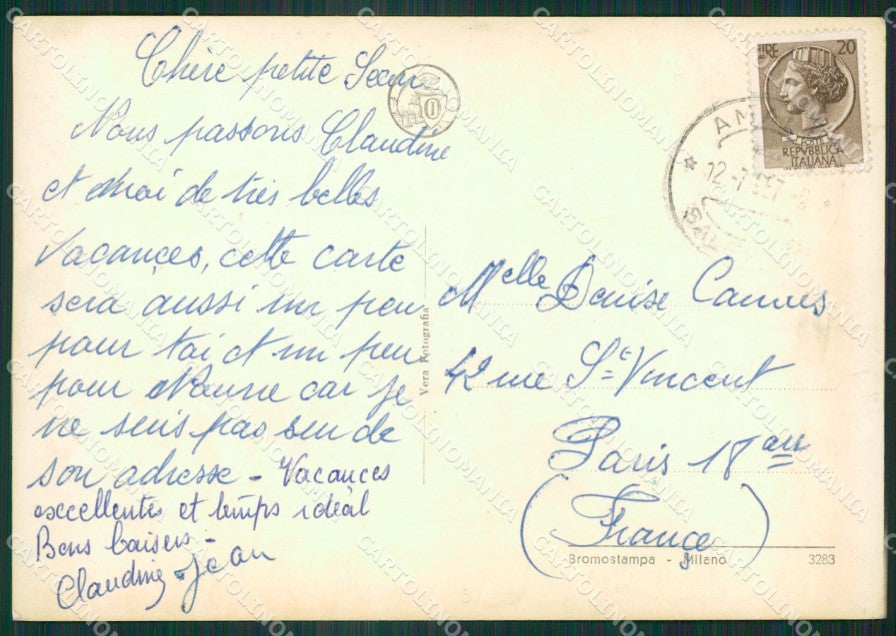 Chère petite Sœur
Nous passons Claudine
et moi de très belles
vacances, cette carte
sera aussi un peu
pour toi et un peu
pour car je
ne suis pas sûr de
son adresse - Vacances
excellentes et temps idéal
Bons baisers -
Claudine Jean
Vera Fotografia
LIRE 20
REPVBBLICA
ITALIANA
AM
12 -7
SAL
Melle Denise
42 rue St Vincent
Paris 18
(France)
Bromostampa - Milano
3283
CARTOLINOMANIA